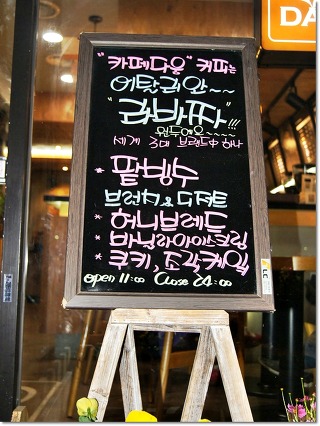 DA
"카페다온" 커피는
이탈리안~~
"라바짜"!!!
원두에요~~~
세계 3대 브랜드中 하나
* 팥빙수
브런치 & 디저트
* 허니브레드
* 바닐라아이스크림
* 쿠키, 조각케익
open 11:00 Close 24:00